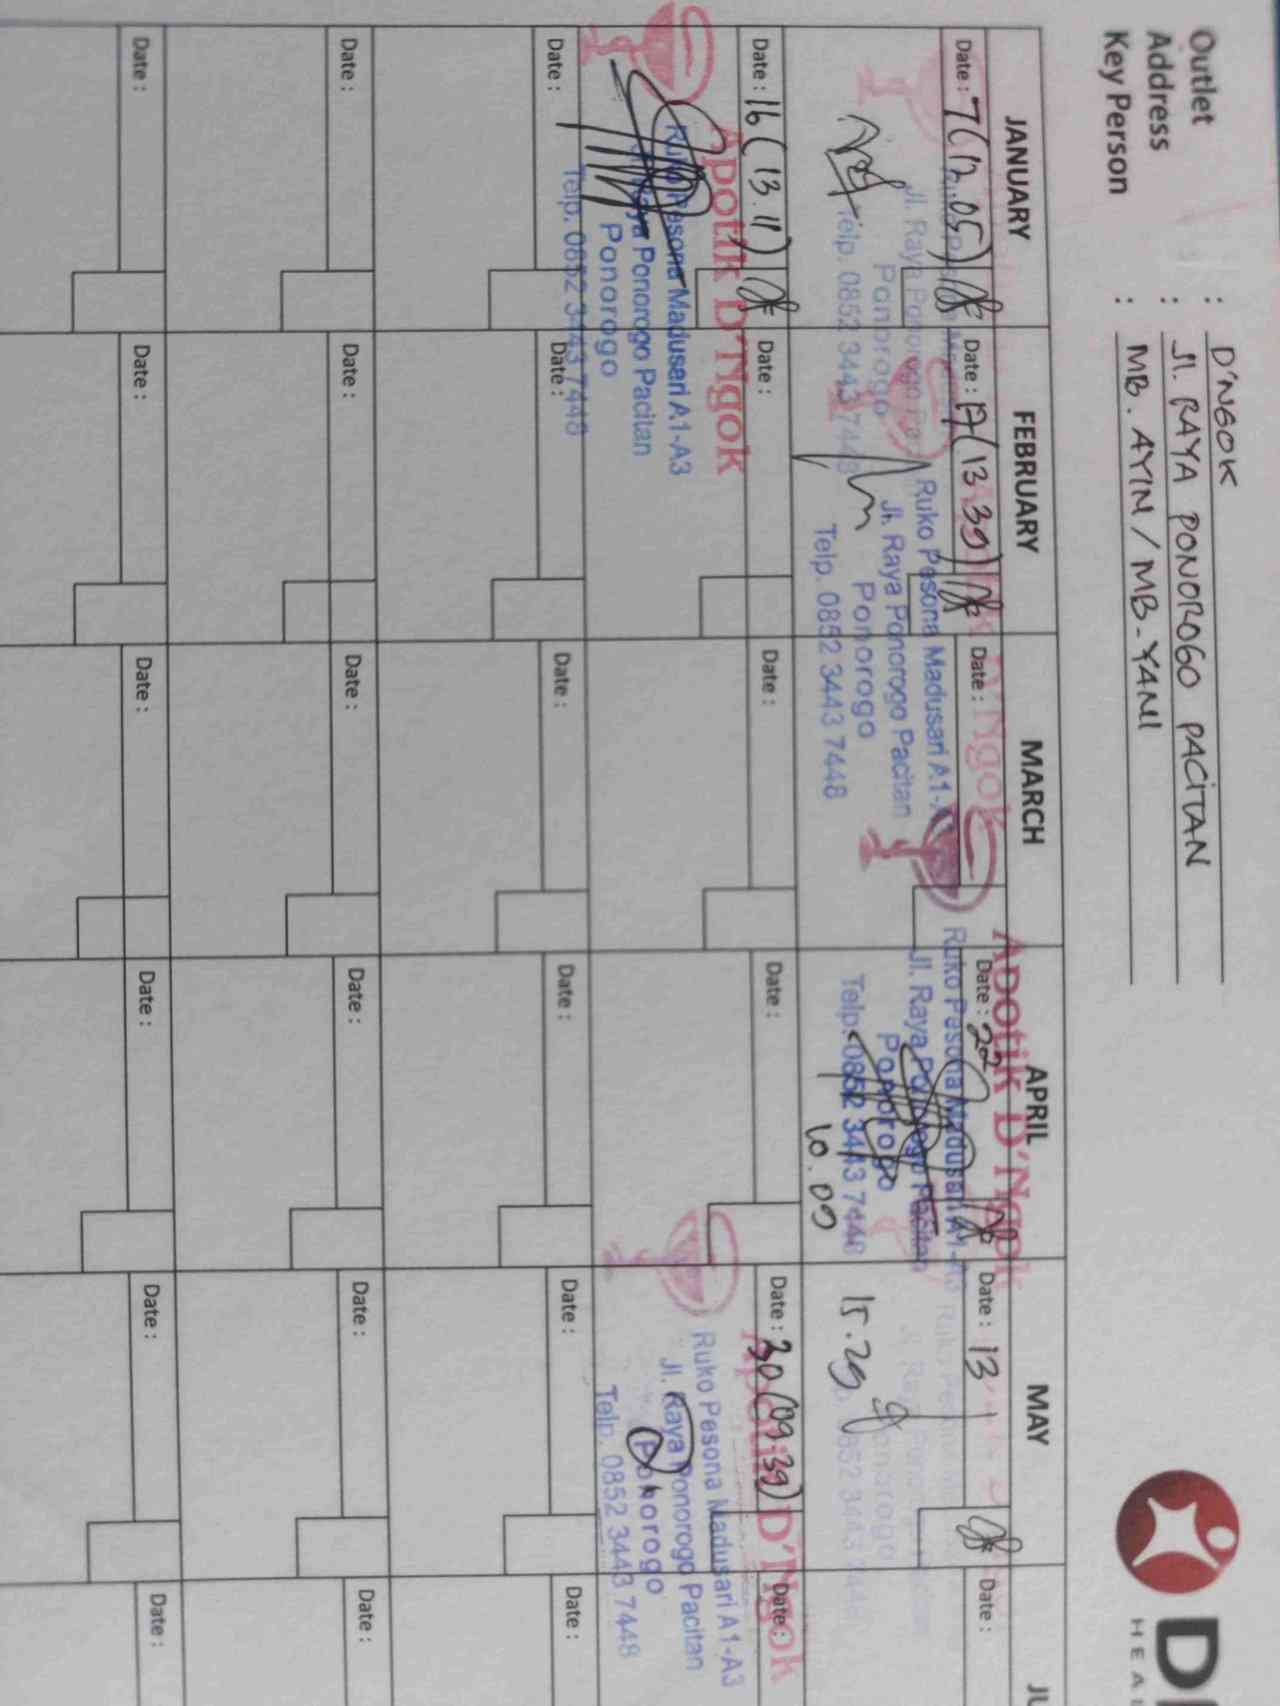 Outlet : D'NGOK
Address : Jl. RAYA PONOROGO PACITAN
Key Person : MB. AYIN / MB-YANI
JANUARY FEBRUARY MARCH APRIL MAY
Date : 7 (12.05) Date : 17 (13.39) Date : Date : 22 Date : 13 Date :
Apotik D'Ngok
Ruko Pesona Madusari A1-A3
Jl. Raya Ponorogo Pacitan
Ponorogo
Telp. 0852 3443 7448
D'Ngok
Ruko Pesona Madusari
Jl. Raya Ponorogo Pacitan
Ponorogo
Telp. 0852 3443 7448
Jl. Raya Ponorogo
Ponorogo
Telp. 0852 3443 7448
10.09
15.29
Date : 16 (13.11) Date : Date : Date : Date : 30 (09.39) Date :
Apotik D'Ngok
Ruko Pesona Madusari A1-A3
Jl. Raya Ponorogo Pacitan
Ponorogo
Telp. 0852 3443 7448
Apotik D'Ngok
Ruko Pesona Madusari A1-A3
Jl. Raya Ponorogo Pacitan
Ponorogo
Telp. 0852 3443 7448
Date : Date : Date : Date : Date : Date :
Date : Date : Date : Date : Date : Date :
Date : Date : Date : Date : Date : Date :